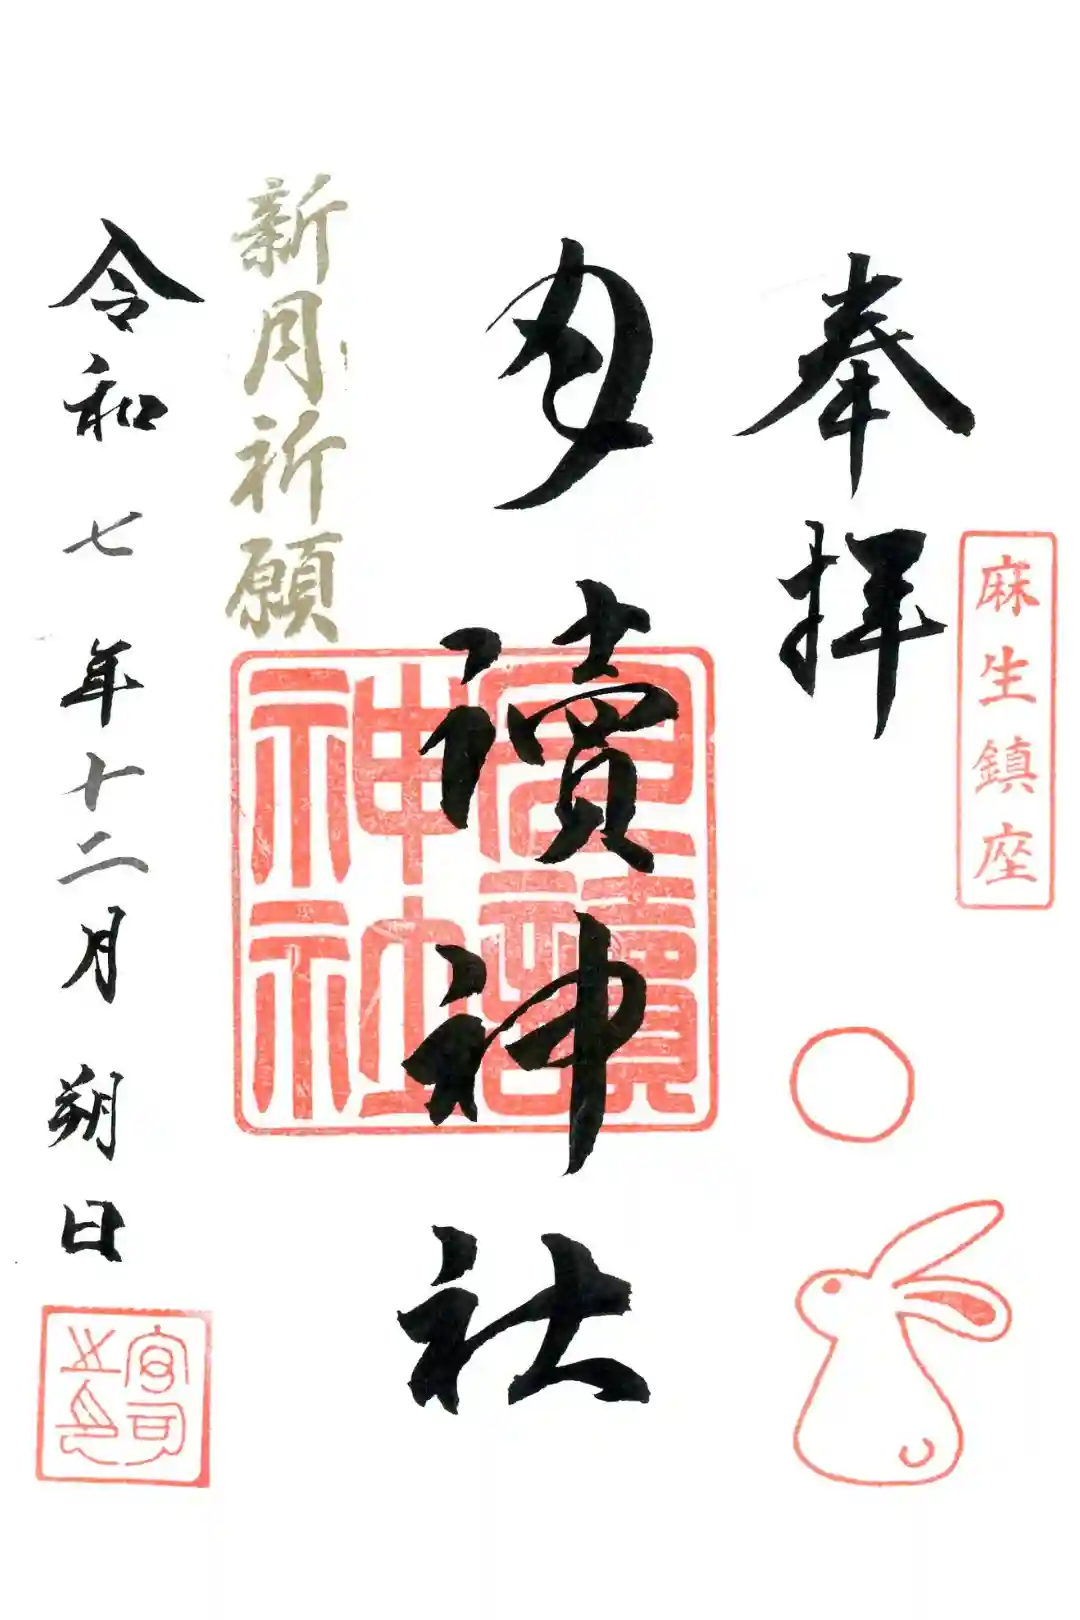 麻生鎮座
奉拝
月讀神社
月讀神社
新月祈願
令和七年十二月朔日
宮司之印